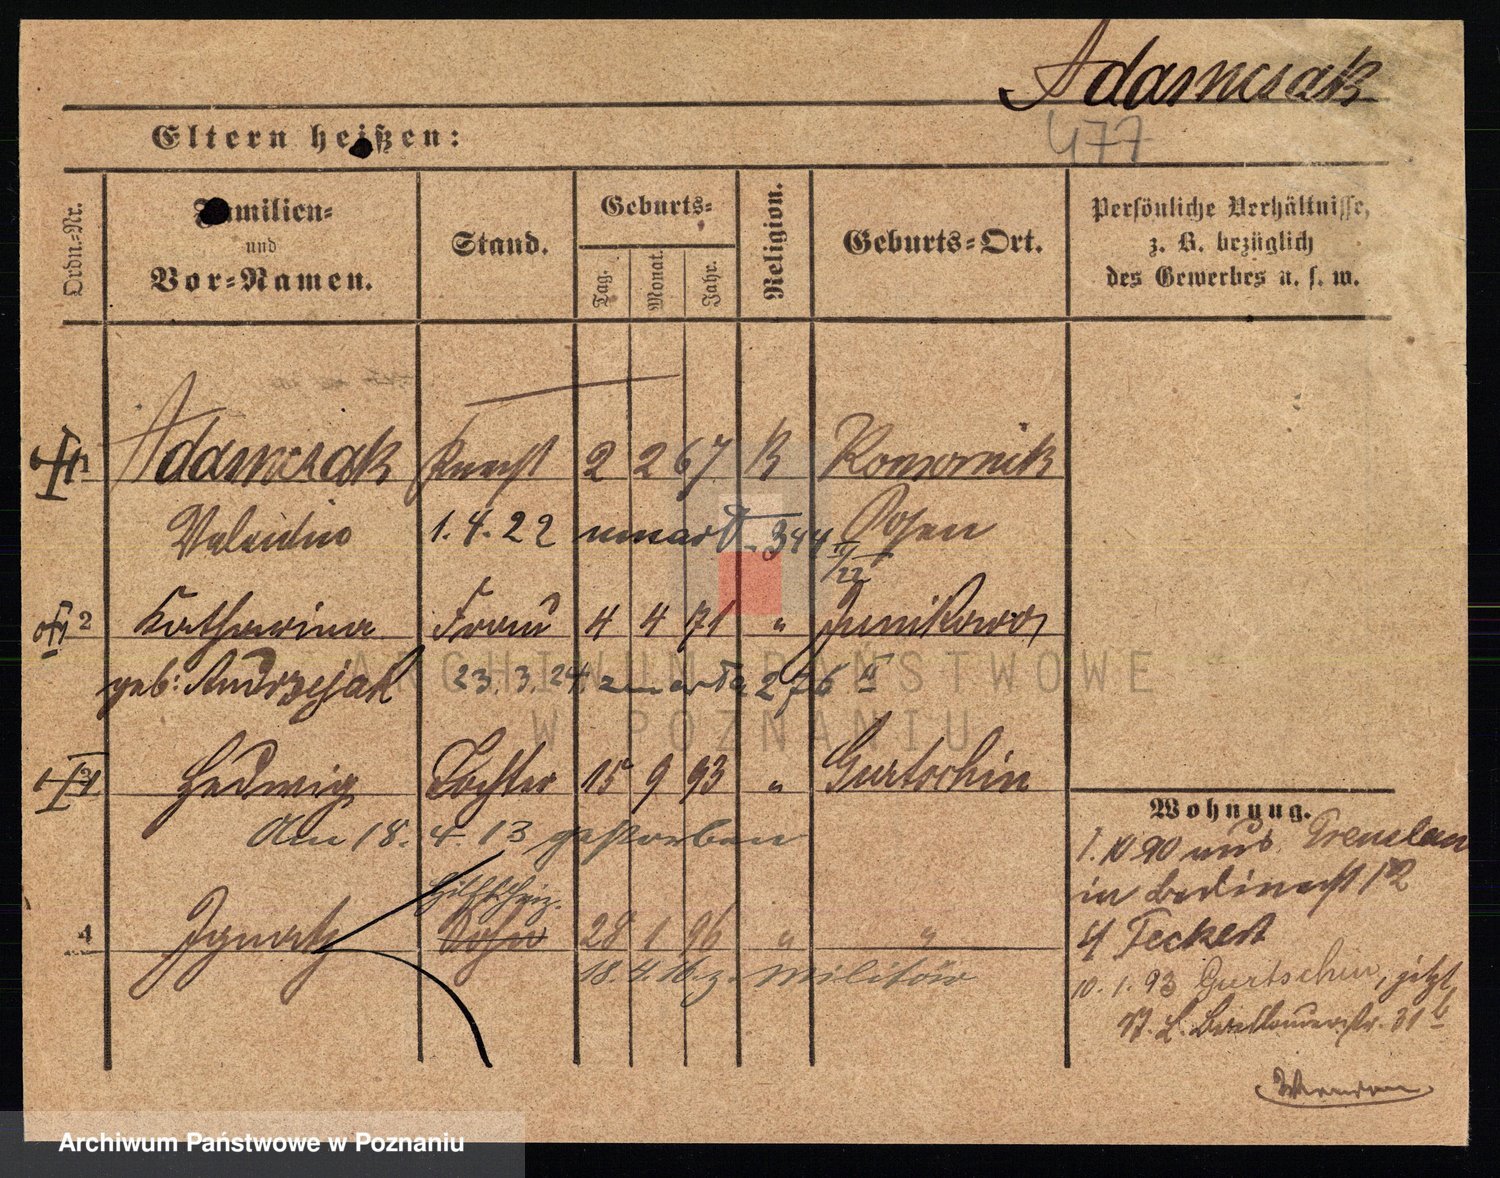 Adamczak
477
Eltern heißen:
Ordn.-Nr.
Familien-
und
Vor-Namen.
Stand.
Geburts-
Tag.
Monat.
Jahr.
Religion.
Geburts-Ort.
Persönliche Verhältnisse,
z. B. bezüglich
des Gewerbes u. s. w.
1 Adamczak Knecht 2 2 67 K Komornik
Valentin 1.4.22 umarł 344 Posen
IV/22
2 Katharina Frau 4 4 71 " Junikowo
geb: Andrzejak 23.3.24. zmarła 276
3 Hedwig Tochter 15 9 93 " Gurtschin
Am 18. 4. 13 gestorben
4 Ignatz Sohn 28 1 96 " "
18. 4. 16 z. Militär
Wohnung.
1. 10 90 aus
in
4/ Teckert
10. 1. 93 Gurtschin, jetzt
31
ARCHIWUM PAŃSTWOWE
W POZNANIU
Archiwum Państwowe w Poznaniu